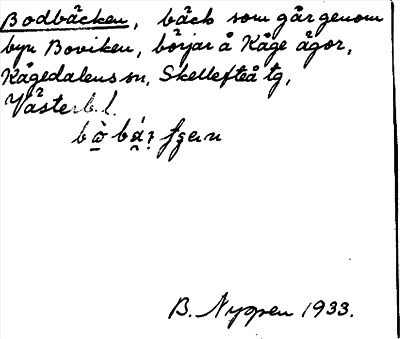 Bodbäcken, bäck som går genom
byn Boviken, börjar å Kåge ågor,
Kågedalens sn, Skellefteå tg,
Västerb. l.
B. Nygren 1933.